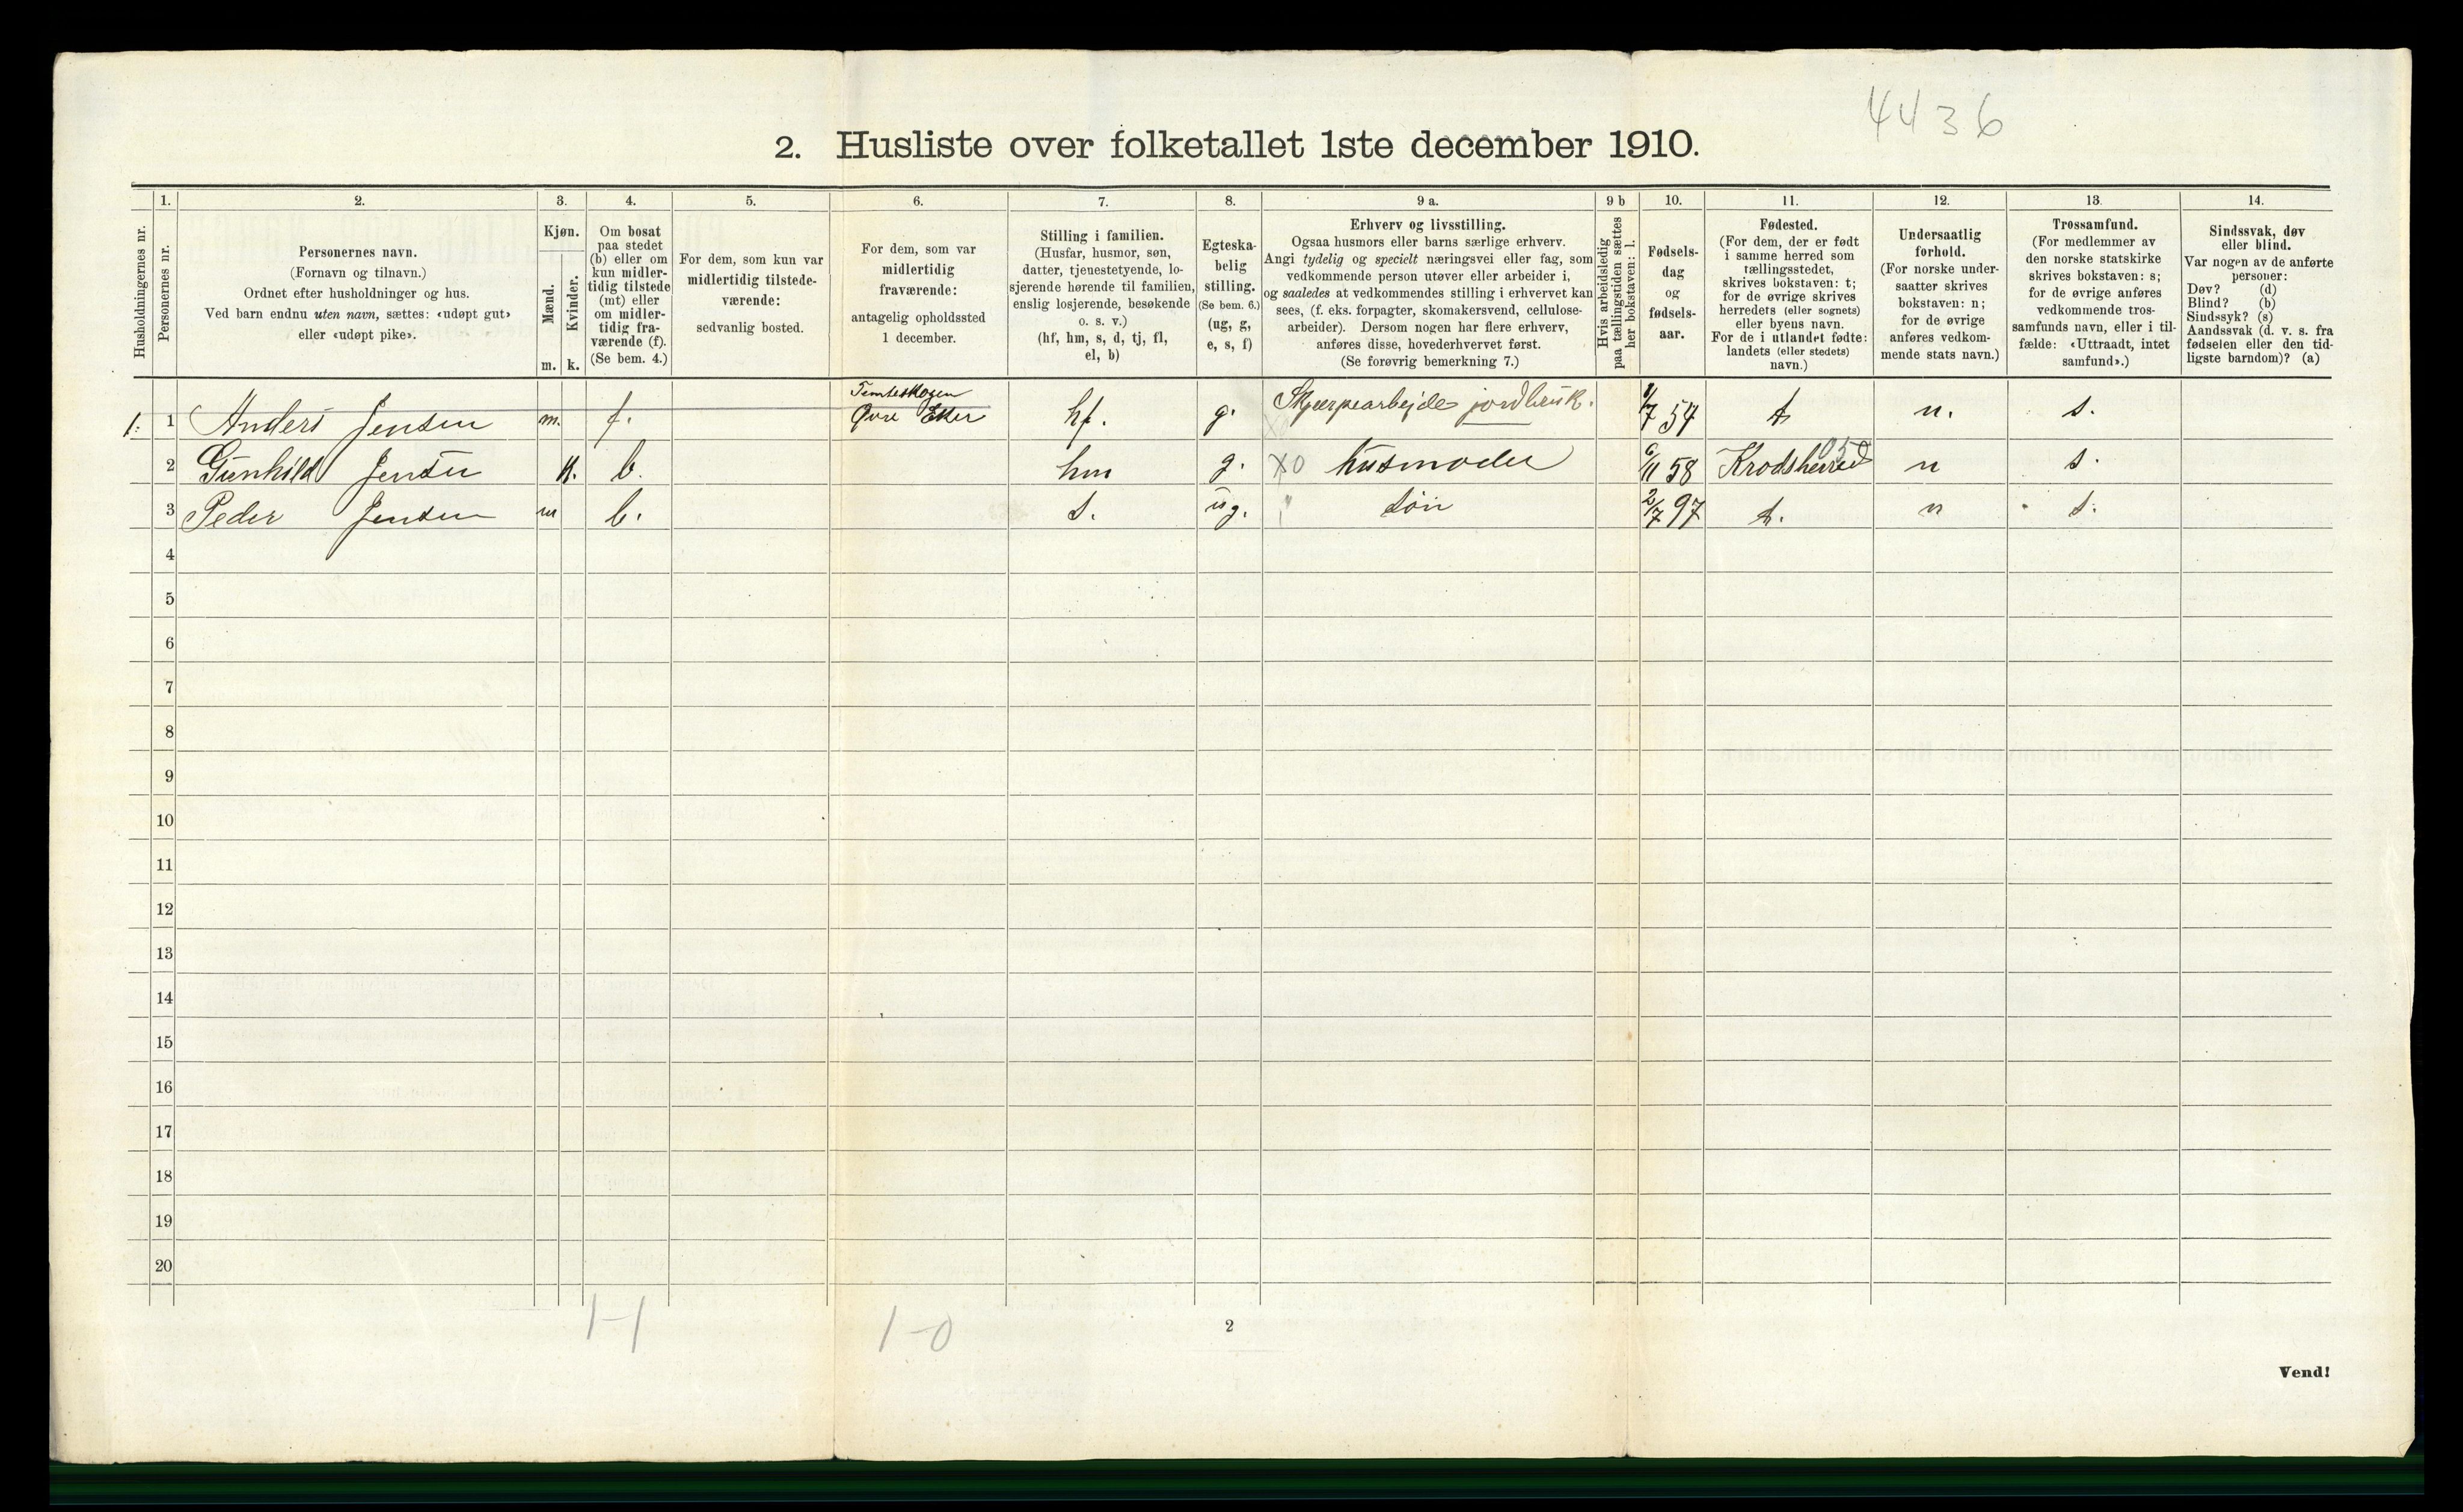 4436
2. Husliste over folketallet 1ste december 1910.
Husholdningernes nr.
Personernes nr.
1. 2. 3. 4. 5. 6. 7. 8. 9 a. 9 b 10. 11. 12. 13. 14.
Personernes navn.
(Fornavn og tilnavn.)
Ordnet efter husholdninger og hus.
Ved barn endnu uten navn, sættes: «udøpt gut»
eller «udøpt pike».
Kjøn.
Mænd.
Kvinder.
m. k.
Om bosat
paa stedet
(b) eller om
kun midler-
tidig tilstede
(mt) eller
om midler-
tidig fra-
værende (f).
(Se bem. 4.)
For dem, som kun var
midlertidig tilstede-
værende:
sedvanlig bosted.
For dem, som var
midlertidig
fraværende:
antagelig opholdssted
1 december.
Stilling i familien.
(Husfar, husmor, søn,
datter, tjenestetyende, lo-
sjerende hørende til familien,
enslig losjerende, besøkende
o. s. v.)
(hf, hm, s, d, tj, fl,
el, b)
Egteska-
belig
stilling.
(Se bem. 6.)
(ug, g,
e, s, f)
Erhverv og livsstilling.
Ogsaa husmors eller barns særlige erhverv.
Angi tydelig og specielt næringsvei eller fag, som
vedkommende person utøver eller arbeider i,
og saaledes at vedkommendes stilling i erhvervet kan
sees, (f. eks. forpagter, skomakersvend, cellulose-
arbeider). Dersom nogen har flere erhverv,
anføres disse, hovederhvervet først.
(Se forøvrig bemerkning 7.)
Hvis arbeidsledig
paa tællingstiden sættes
her bokstaven: l.
Fødsels-
dag
og
fødsels-
aar.
Fødested.
(For dem, der er født
i samme herred som
tællingsstedet,
skrives bokstaven: t;
for de øvrige skrives
herredets (eller sognets)
eller byens navn.
For de i utlandet fødte:
landets (eller stedets)
navn.)
Undersaatlig
forhold.
(For norske under-
saatter skrives
bokstaven: n;
for de øvrige
anføres vedkom-
mende stats navn.)
Trossamfund.
(For medlemmer av
den norske statskirke
skrives bokstaven: s;
for de øvrige anføres
vedkommende tros-
samfunds navn, eller i til-
fælde: «Uttraadt, intet
samfund».)
Sindssvak, døv
eller blind.
Var nogen av de anførte
personer:
Døv? (d)
Blind? (b)
Sindssyk? (s)
Aandssvak (d. v. s. fra
fødselen eller den tid-
ligste barndom)? (a)
1. 1 Anders Jensen m. f. Øvre Eker hf. g. jordbruk. 1/7 54 t n. s.
2 Gunhild Jensen k. b. hm g. XO husmoder 6/11 58 Krodsherred n s.
3 Peder Jensen m b. s. ug. " søn 2/7 97 t. n s.
4
5
6
7
8
9
10
11
12
13
14
15
16
17
18
19
20
1-1 1-0
2
Vend!